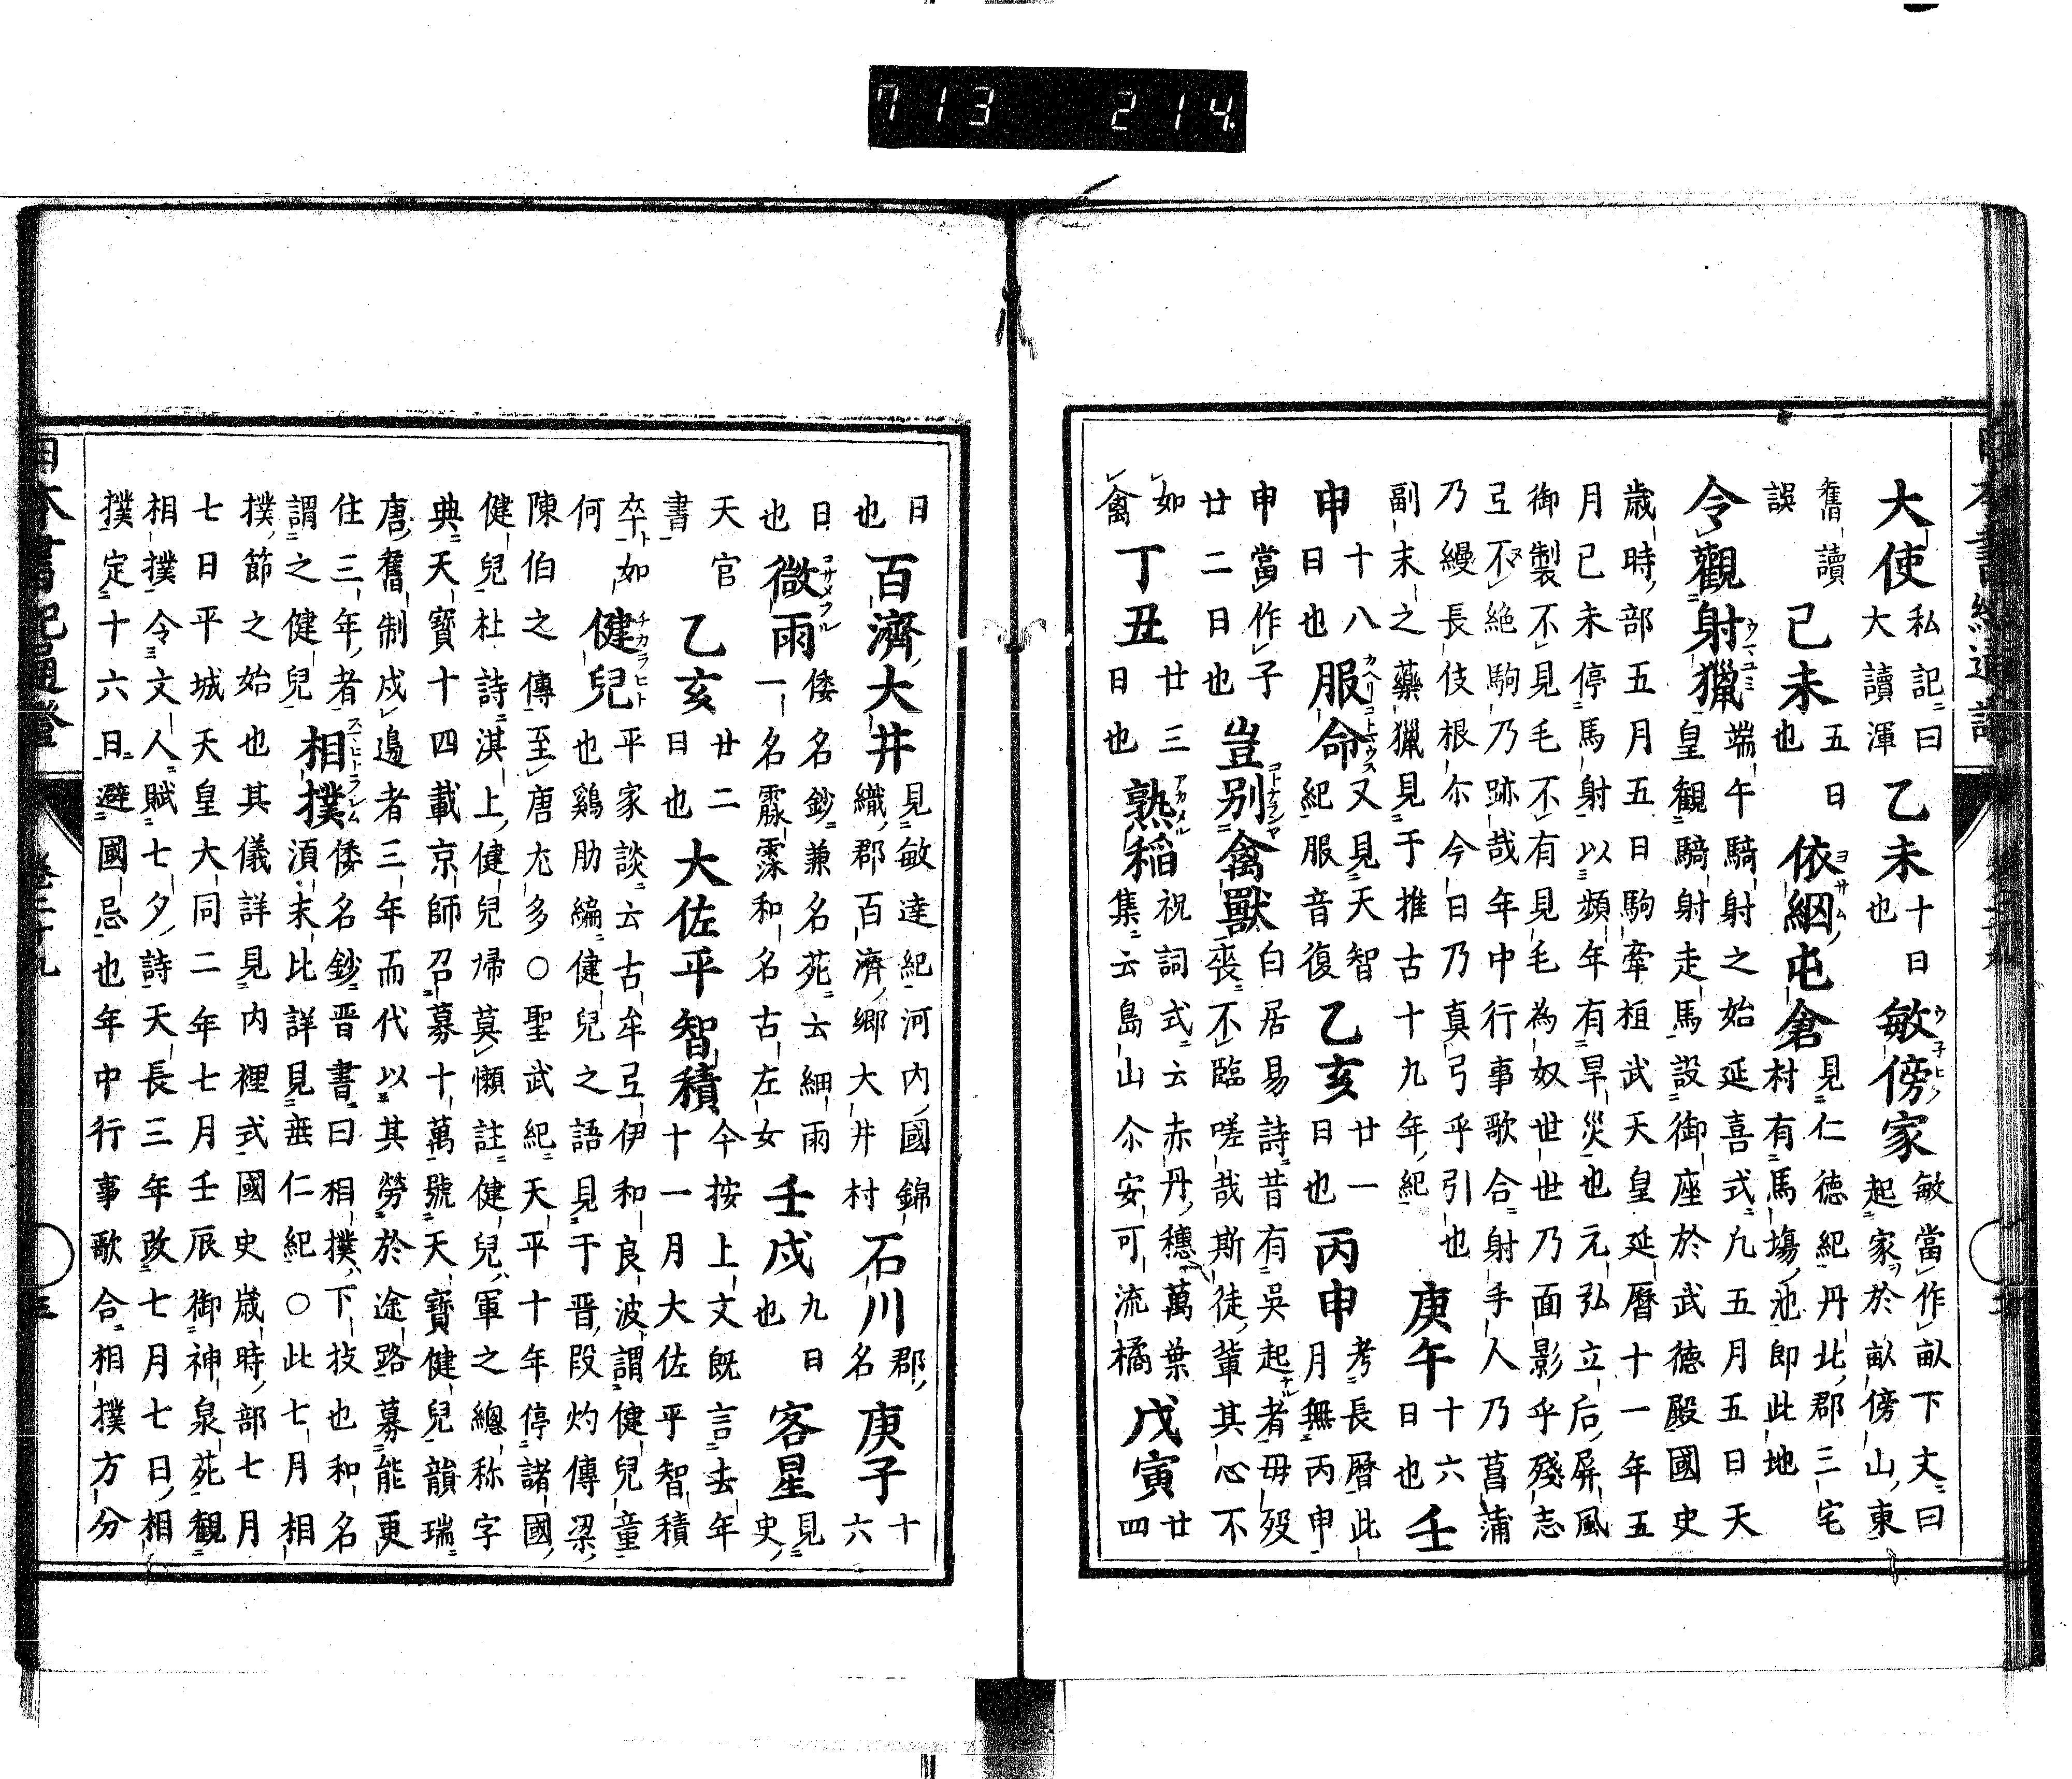 713 214
大使私記曰大讀渾乙未十日也敏傍家敏當作畝下文曰起家於畝傍山東
舊讀誤己未五日也依網屯倉見仁徳紀丹北郡三宅村有馬塲池即此地
令觀射獵端午騎射之始延喜式九五月五日天皇觀騎射走馬設御座於武徳殿國史
歳時部五月五日駒牽祖武天皇延暦十一年五月己未停馬射以頻年有旱災也元弘立后屏風
御製不見毛不有見毛為奴世世乃面影乎殘志弖不絶駒乃跡哉年中行事歌合射手人乃菖蒲
乃縵長伎根尓今日乃真弓乎引也副末之藥獵見于推古十九年紀庚午十六日也壬
申十八日也服命又見天智紀服音復乙亥廿一日也丙申考長暦此月無丙申
申當作子廿二日也豈別禽獸白居易詩昔有吳起者母殁喪不臨嗟哉斯徒輩其心不
如禽丁丑廿三日也熟稲祝詞式云赤丹穗萬葉集云島山尓安可流橘戊寅廿四
日也百濟大井見敏達紀河内國錦織郡百濟郷大井村石川郡名庚子十六
日也微雨倭名鈔兼名苑云細雨一名霢霂和名古左女壬戌九日也客星見史
天官書乙亥廿二日也大佐平智積今按上文既言去年十一月大佐平智積
卒如何健兒平家談云古牟弖伊和良波謂健兒童也鷄肋編健兒之語見于晋段灼傳梁
陳伯之傳至唐尤多○聖武紀天平十年停諸國健兒杜詩淇上健兒歸莫懶註健兒軍之總称字
典天寶十四載京師召募十萬號天寶健兒韻瑞唐舊制戍邊者三年而代以其勞於途路募能更
住三年者謂之健兒相撲倭名鈔晋書曰相撲下技也和名須末比詳見垂仁紀○此七月相
撲節之始也其儀詳見内裡式國史歳時部七月七日平城天皇大同二年七月壬辰御神泉苑観
相撲令文人賦七夕詩天長三年改七月七日相撲定十六日避國忌也年中行事歌合相撲方分